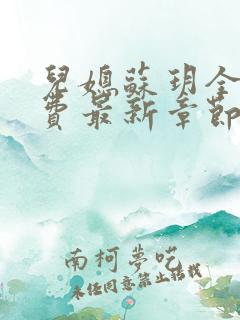 兒媳蘇玥全
費最新章節
南柯夢呓
未经同意禁止转载